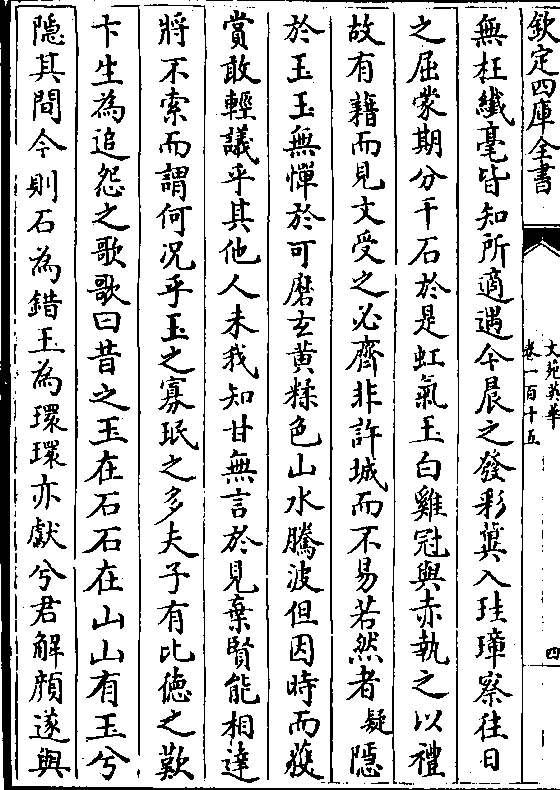 欽定四庫全書
文苑英華
卷一百十五
四
無枉纖毫皆知所適遇今晨之發彩冀入珪璋察往日
之屈蒙期分干石於是虹氣玉白雞冠與赤執之以禮
故有藉而見文受之必齊非許城而不易若然者疑隱
於玉玉無憚於可磨玄黃糅色山水騰波但因時而獲
賞敢輕議乎其他人未我知甘無言於見棄賢能相達
將不索而謂何况乎玉之寡珉之多夫子有比德之歎
卞生為追怨之歌歌曰昔之玉在石石在山山有玉兮
隱其間今則石為錯玉為環環亦獻兮君解顔遂與